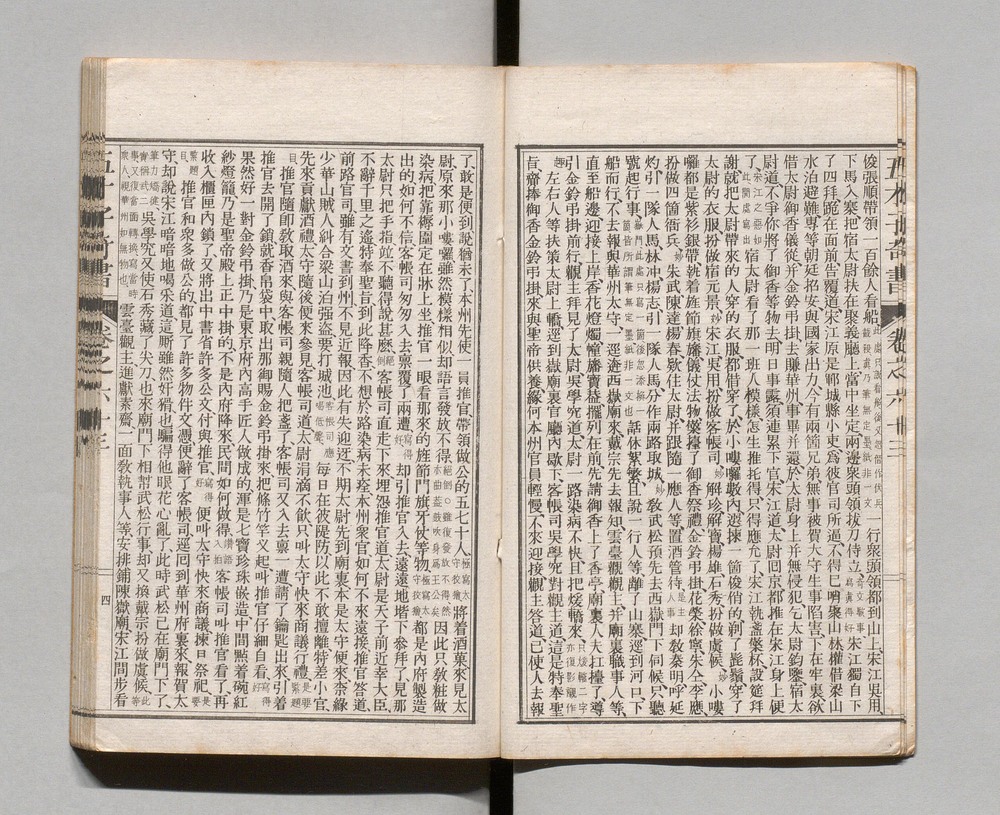 俊張順帶領一百餘人看船一行衆頭領都到山上宋江吳用
下馬入寨把宿太尉扶在聚義廳上當中坐定兩邊衆頭領拔刀侍立宋江獨自下
了四拜跪在面前告覆道宋江原是鄆城縣小吏爲彼官司所逼不得已哨聚山林權借梁山
水泊避難專等朝廷招安與國家出力今有兩箇兄弟無事被賀太守生事陷害下在牢裏欲
借太尉御香儀從并金鈴弔掛去賺華州事畢并還於太尉身上并無侵犯乞太尉鈞鑒宿太
尉道不爭你將了御香等物去明日事露須連累下官宋江道太尉回京都推在宋江身上便
了宿太尉看了那一班人模樣怎生推托得只得應允了宋江執盞擎杯設筵拜
謝就把太尉帶來的人穿的衣服都借穿了於小嘍囉數內選揀一箇俊俏的剃了髭鬚穿了
太尉的衣服扮做宿元景妙宋江吳用扮做客帳司妙解珍解寶楊雄石秀扮做虞候妙小嘍
囉都是紫衫銀帶執着旌節旗旛儀仗法物擎擡了御香祭禮金鈴弔掛花榮徐寧朱仝李應
扮做四箇衙兵妙朱武陳達楊春款住太尉并跟隨一應人等置酒管待却敎秦明呼延
灼引一隊人馬林冲楊志引一隊人馬分作兩路取城妙敎武松預先去西嶽門下伺候只聽
號起行事話休絮繁且說一行人等離了山寨逕到河口下
船而行不去報與華州太守一逕奔西嶽廟來戴宗先去報知雲臺觀觀主并廟裏職事人等
直至船邊迎接上岸香花燈燭幢旛寶蓋擺列在前先請御香上了香亭廟裏人夫扛擡了導
引金鈴弔掛前行觀主拜見了太尉吳學究道太尉一路染病不快且把煖轎來
左右人等扶策太尉上轎逕到嶽廟裏官廳內歇下客帳司吳學究對觀主道這是特奉聖
旨齎捧御香金鈴弔掛來與聖帝供養緣何本州官員輕慢不來迎接觀主答道已使人去報
了敢是便到說猶未了本州先使一員推官帶領做公的五七十人將着酒菓來見太
尉原來那小嘍囉雖然模樣相似却語言發放不得因此只敎粧做
染病把靠褥圍定在牀上坐推官一眼看那來的旌節門旗牙仗等物都是內府製造
出的如何不信客帳司匆匆入去稟覆了兩遭好却引推官入去遠遠地堦下參拜了見那
太尉只把手指竝不聽得說甚麽客帳司直走下來埋怨推官道太尉是天子前近幸大臣
不辭千里之遙特奉聖旨到此降香不想於路染病未痊本州衆官如何不來遠接推官答道
前路官司雖有文書到州不見近報因此有失迎迓不期太尉先到廟裏本是太守便來奈緣
少華山賊人糾合梁山泊强盜要打城池每日在彼隄防以此不敢擅離特差小官
先來貢獻酒禮太守隨後便來參見客帳司道太尉涓滴不飲只叫太守快來商議行禮
推官隨卽敎取酒來與客帳司親隨人把盞了客帳司又入去稟一遭請了鑰匙出來引着
推官去開了鎖就香帛袋中取出那御賜金鈴弔掛來把條竹竿叉起叫推官仔細自看
果然好一對金鈴弔掛乃是東京內府高手匠人做成的渾是七寶珍珠嵌造中間點着碗紅
紗燈籠乃是聖帝殿上正中掛的不是內府降來民間如何做得客帳司叫推官看了再
收入櫃匣內鎖了又將出中書省許多公文付與推官好便叫太守快來商議揀日祭祀
推官和衆多做公的都見了許多物件文憑便辭了客帳司逕回到華州府裏來報賀太
守却說宋江暗暗地喝采道這廝雖然奸猾也騙得他眼花心亂了此時武松已在廟門下了
吳學究又使石秀藏了尖刀也來廟門下相幇武松行事却又換戴宗扮做虞候
雲臺觀主進獻素齋一面敎執事人等安排鋪陳嶽廟宋江閒步看
五才子奇書
卷之六十三
四